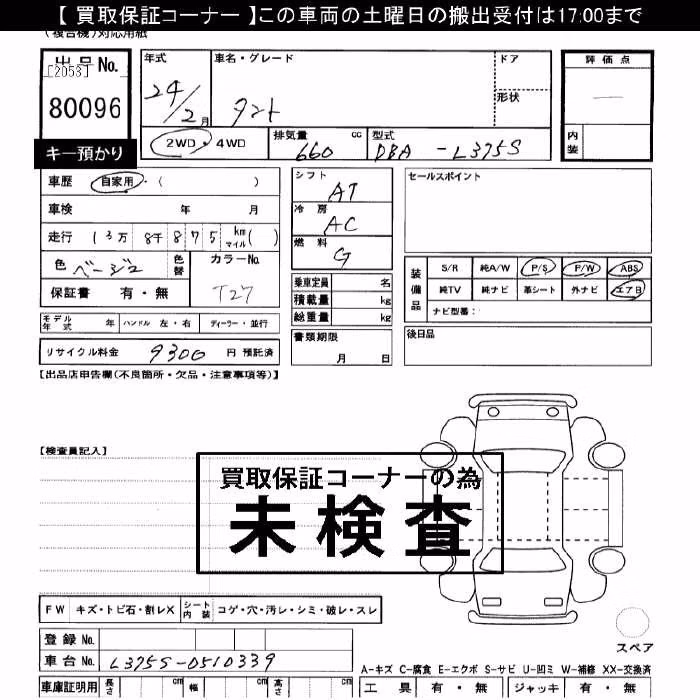 【 買取保証コーナー 】この車両の土曜日の搬出受付は17:00まで
(複合機)対応用紙
出品No.
[2053]
80096
キー預かり
年式
24/2月
車名・グレード
タント
ドア
形状
評価点
内装
2WD・4WD
排気量 cc
660
型式
DBA-L375S
車歴 自家用・( )
車検 年 月
走行 13万 8千 875 km マイル( )
色 ベージュ 色替
カラーNo.
T27
保証書 有・無
シフト
AT
冷房
AC
燃料
G
乗車定員 名
積載量 kg
総重量 kg
書類期限
月 日
セールスポイント
装備品
S/R 純A/W P/S P/W ABS
純TV 純ナビ 革シート 外ナビ エアB
ナビ型番:
後日品
モデル年式 年 ハンドル 左・右 ディーラー・並行
リサイクル料金 9300 円 預託済
【出品店申告欄(不良箇所・欠品・注意事項等)】
【検査員記入】
買取保証コーナーの為
未検査
FW キズ・トビ石・割レX シート内装 コゲ・穴・汚レ・シミ・破レ・スレ
登録No.
車台No. L375S-0510339
車庫証明用 長さ cm 幅 cm 高さ cm
スペア
A-キズ C-腐食 E-エクボ S-サビ U-凹ミ W-補修 XX-交換済
工具 有・無 ジャッキ 有・無